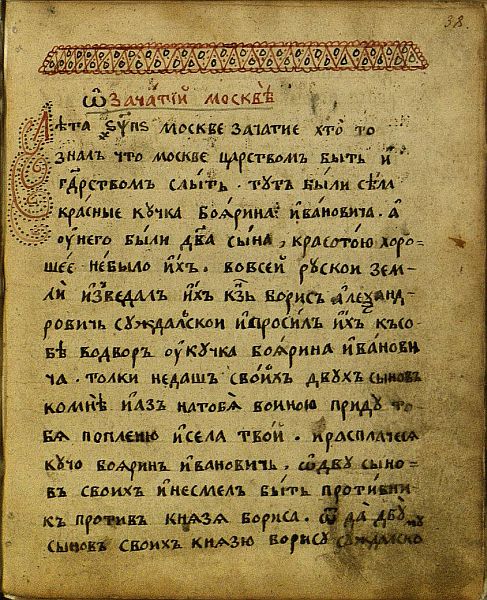 38.
Ѡ ЗАЧАТІЙ МОСКВѢ
Лѣта ҂ѕѱпѕ москве зачатие хто то
зналъ что москве царствомъ быть и҆
гдⷭ҇рствомъ слыть. тутъ были сѣла
красные кучка боярина и҆вановича. а҆
оу҆него были два сына, красотою хоро-
шее небыло и҆хъ. вовсей руской зем-
ли и҆зведалъ и҆хъ кн҃зь борисъ а҆леѯанд-
ровичь суждалской и҆просилъ и҆хъ къ со-
бѣ водворъ оу҆кучка боярина и҆ванови
ча. толки недашъ своихъ двухъ сыновъ
комнѣ и҆азъ натобя воиною приду то-
бя попленю и҆села твои. и҆расплачеся
кучо бояринъ и҆вановичь, ѿдву сыно-
въ своихъ и҆несмелъ быть противни-
къ противъ князя бориса. ѿда двухъ
сыновъ своихъ князю борису суждалско